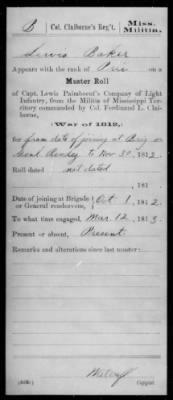 B
Col. Claiborne's Reg't.
Miss.
Militia.
Lewis Baker
Appears with the rank of Priv on a
Muster Roll
of Capt. Lewis Paimboeuf's Company of Light
Infantry, from the Militia of Mississippi Ter-
ritory commanded by Col. Ferdinand L. Clai-
borne,
(War of 1812,)
for from date of joining at Brig or
Genl Rendez to Nov 30, 1812.
Roll dated not dated
, 181 .
Date of joining at Brigade
or General rendezvous,
Oct 1, 1812
To what time engaged, Mar. 12, 1813.
Present or absent, Present
Remarks and alterations since last muster:
Copyist.